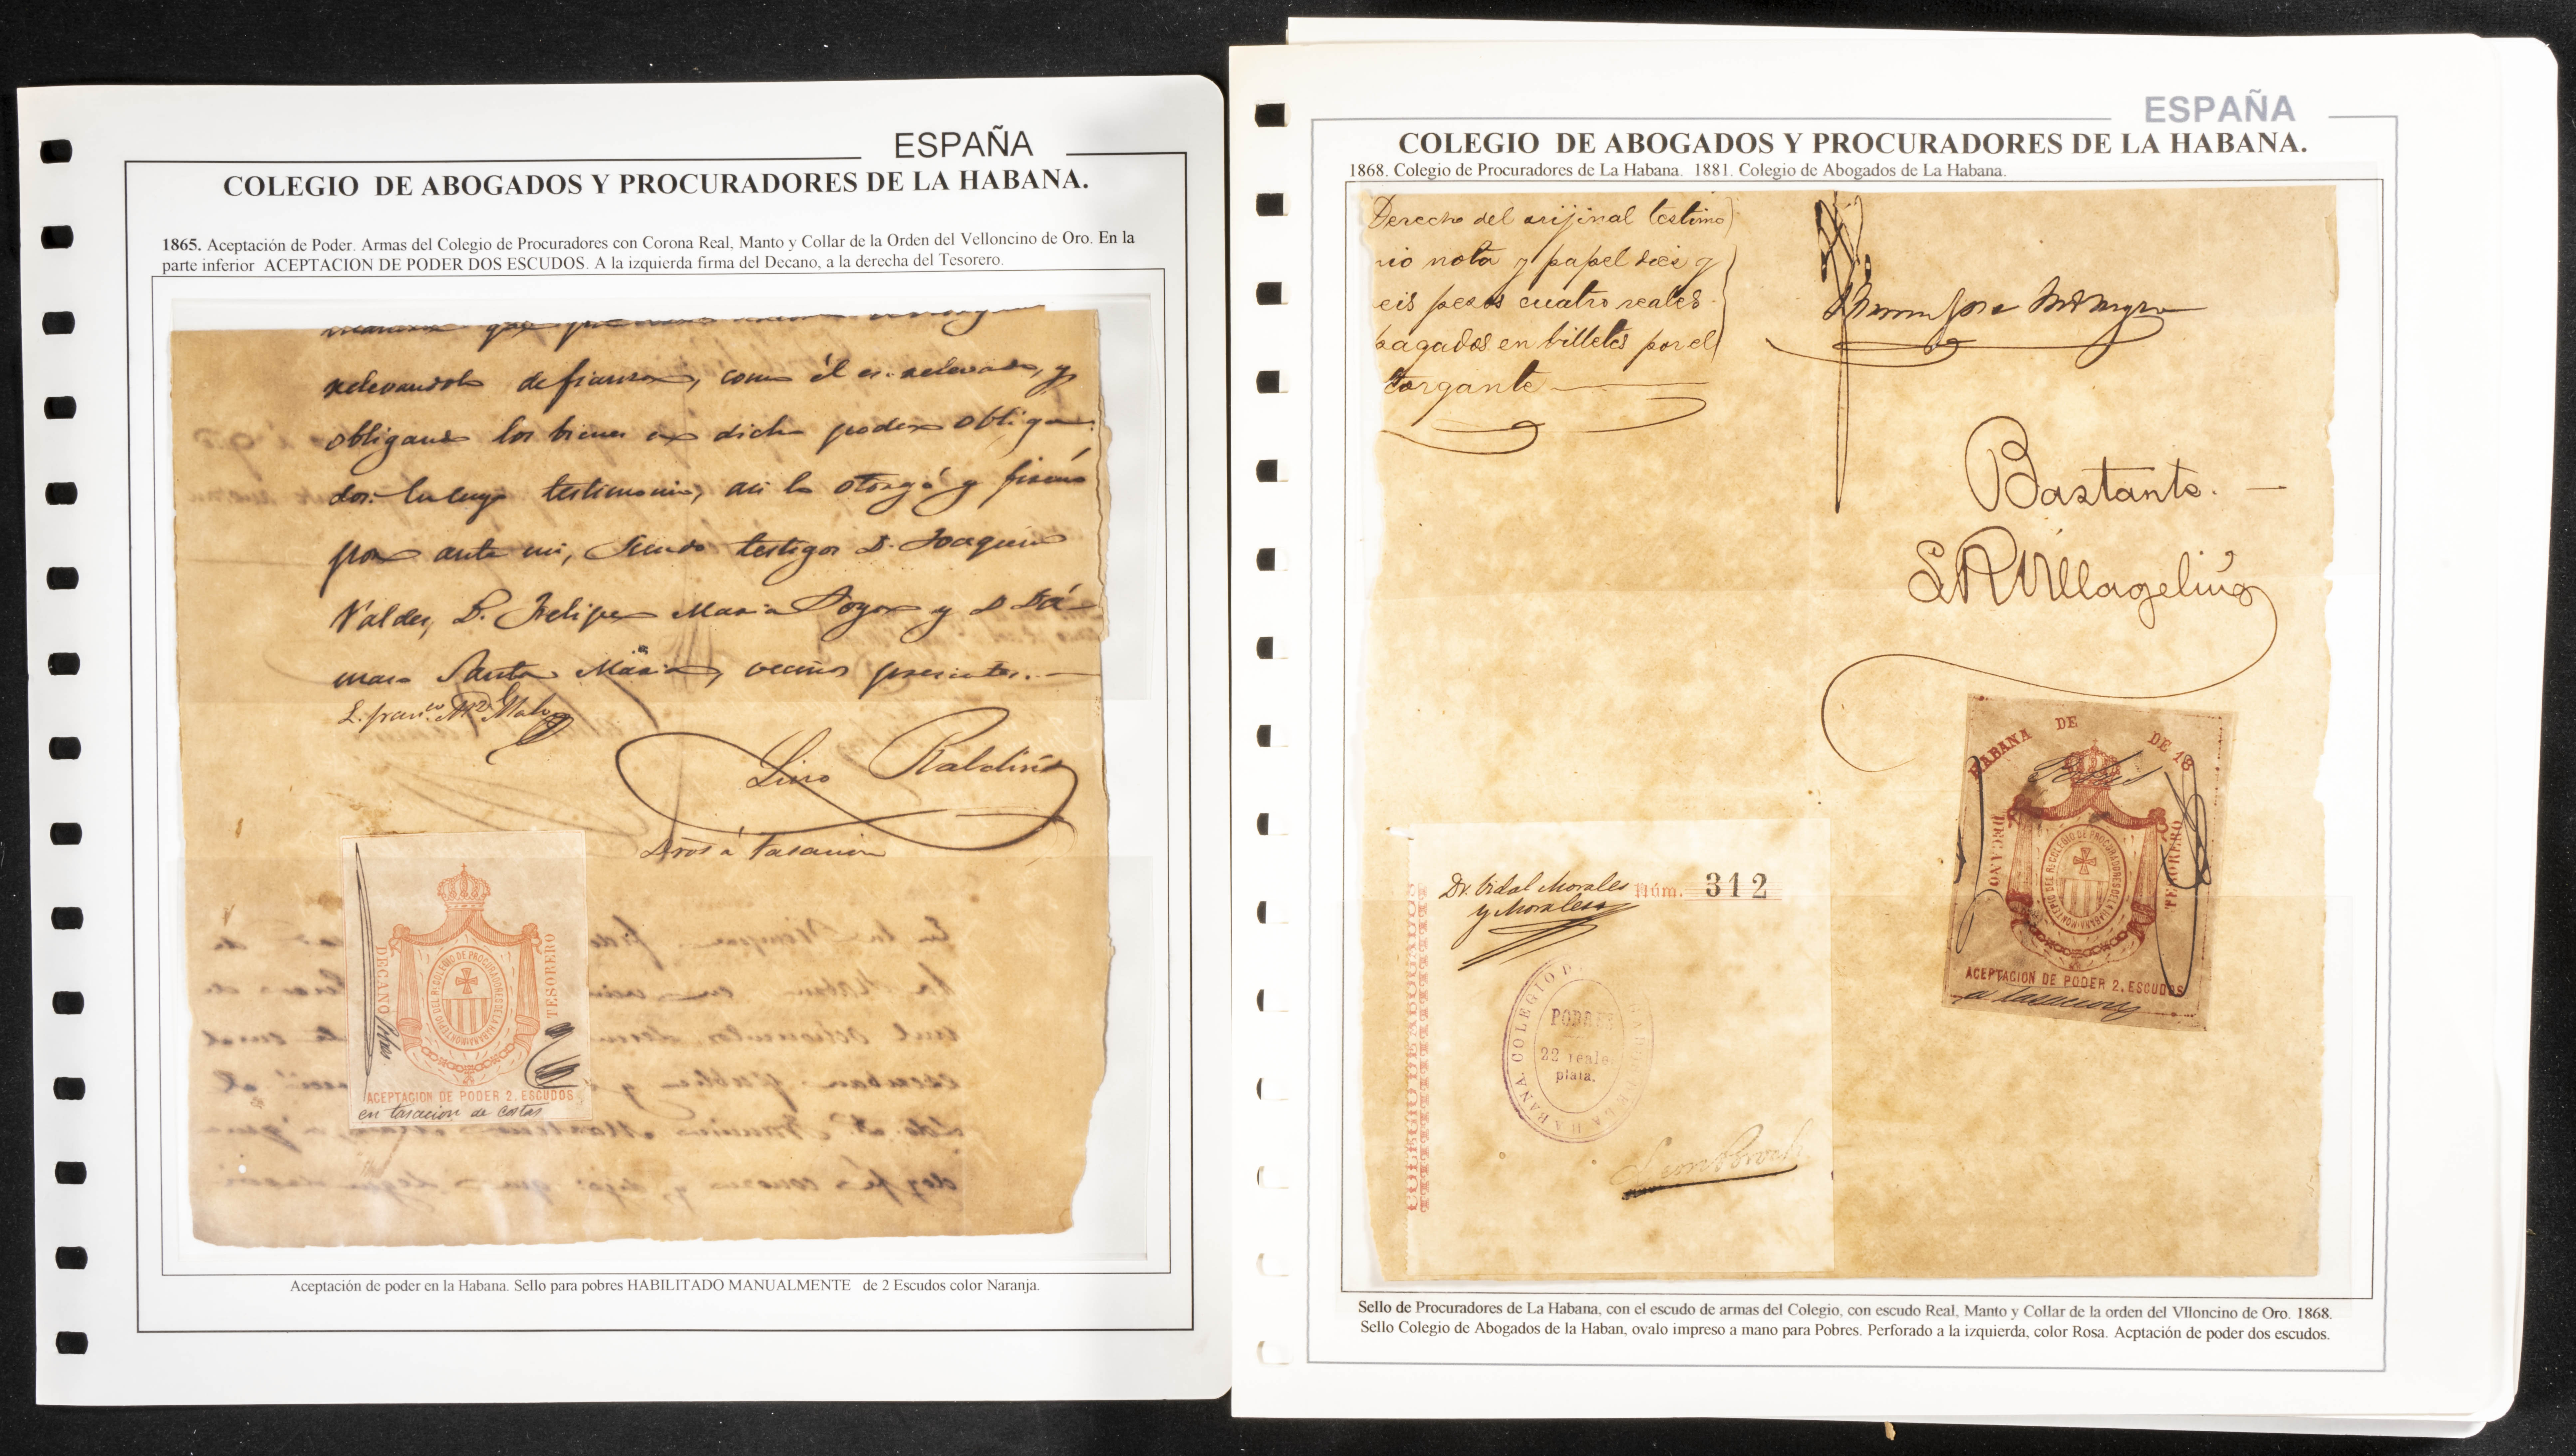 ESPAÑA
COLEGIO DE ABOGADOS Y PROCURADORES DE LA HABANA.
1865. Aceptación de Poder. Armas del Colegio de Procuradores con Corona Real, Manto y Collar de la Orden del Velloncino de Oro. En la
parte inferior ACEPTACION DE PODER DOS ESCUDOS. A la izquierda firma del Decano, a la derecha del Tesorero.
relevandolo de fianza, como él es relevado, y
obligando los bienes en dicho poder obliga-
dos. En cuyo testimonio, asi lo otorgó y firmó
por ante mi, siendo testigos D. Joaquin
Valdes, D. Felipe Maria y D. Dá-
maso Santa Maria, vecinos presentes.
Lino
Dros á tasacion
DECANO
TESORERO
MONTEPIO DEL RL COLEGIO DE PROCURADORES DE LA HABANA
ACEPTACION DE PODER 2. ESCUDOS
en tasacion de costas
Aceptación de poder en la Habana. Sello para pobres HABILITADO MANUALMENTE de 2 Escudos color Naranja.
ESPAÑA
COLEGIO DE ABOGADOS Y PROCURADORES DE LA HABANA.
1868. Colegio de Procuradores de La Habana. 1881. Colegio de Abogados de La Habana.
Derecho del orijinal testimo
nio nota y papel dies y
eis pesos cuatro reales
pagados en billetes por el
torgante
Bastante.
HABANA DE DE 18
DECANO
TESORERO
MONTEPIO DEL RL COLEGIO DE PROCURADORES DE LA HABANA
ACEPTACION DE PODER 2. ESCUDOS
a tasacion
COLEGIO DE ABOGADOS
Dr. Vidal Morales
y Morales
Núm. 312
COLEGIO D HABANA.
POBRES
22 reale
plata.
Sello de Procuradores de La Habana, con el escudo de armas del Colegio, con escudo Real, Manto y Collar de la orden del Vlloncino de Oro. 1868.
Sello Colegio de Abogados de la Haban, ovalo impreso a mano para Pobres. Perforado a la izquierda, color Rosa. Acptación de poder dos escudos.